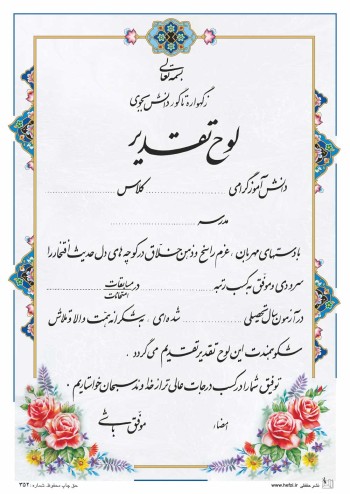 بسمه تعالی
ز گهواره تا گور دانش بجوی
لوح تقدیر
دانش آموز گرامی .................... کلاس ....................
مدرسه ....................
با دستهای مهربان ، عزم راسخ و ذهن خلّاق در کوچه های دل حدیث افتخار را
سرودی و موفّق به کسب رتبه .................... در مسابقات
امتحانات
در آزمون سال تحصیلی .................... شده ای ، به شکرانه همت والا و تلاش
شکوهمندت این لوح تقدیر تقدیم می گردد .
توفیق شما را در کسب درجات عالی تر از خداوند سبحان خواستاریم .
امضاء
موفّق باشی
نشر حافظی www.hefzi.ir
حق چاپ محفوظ. شماره: ۳۵۲